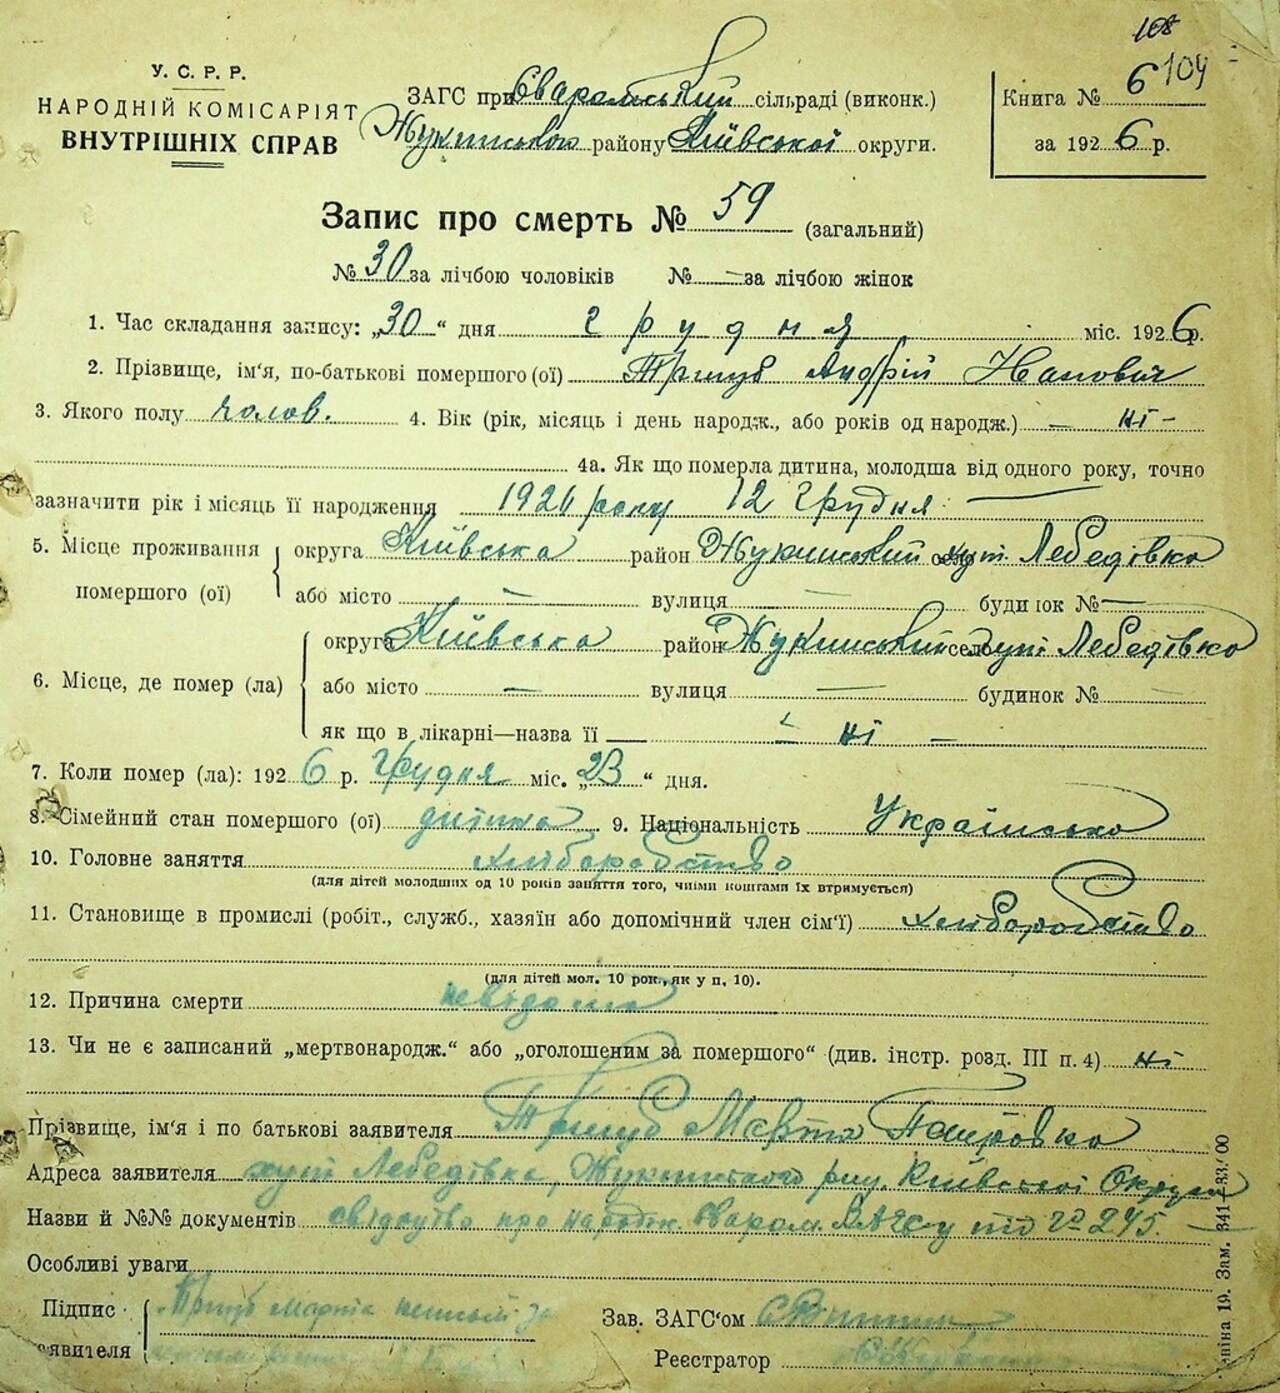 108
109
У. С. Р. Р.
НАРОДНІЙ КОМІСАРІЯТ
ВНУТРІШНІХ СПРАВ
ЗАГС при Єваромській сільраді (виконк.)
Жукинського району Київської округи.
Книга № 6
за 1926 р.
Запис про смерть № 59 (загальний)
№ 30 за лічбою чоловіків № — за лічбою жінок
1. Час складання запису: „30“ дня грудня міс. 1926 р.
2. Прізвище, ім'я, по-батькові помершого (ої) Тригуб Андрій Иванович
3. Якого полу чолов. 4. Вік (рік, місяць і день народж., або років од народж.) — ні —
4а. Як що померла дитина, молодша від одного року, точно
зазначити рік і місяць її народження 1926 року 12 Грудня —
5. Місце проживання помершого (ої) округа Київська район Жукинський село хут. Лебедівка
або місто — вулиця — будинок № —
6. Місце, де помер (ла) округа Київська район Жукинський село хут Лебедівка
або місто — вулиця — будинок № —
як що в лікарні—назва її — ні —
7. Коли помер (ла): 1926 р. Грудня міс. „23“ дня.
8. Сімейний стан помершого (ої) дитина 9. Національність Українська
10. Головне заняття хліборобство
(для дітей молодших од 10 років заняття того, чиїми коштами їх втримується)
11. Становище в промислі (робіт., служб., хазяїн або допомічний член сім'ї) хліборобство
(для дітей мол. 10 рок., як у п. 10).
12. Причина смерти невідома
13. Чи не є записаний „мертвонародж.“ або „оголошеним за помершого“ (див. інстр. розд. III п. 4) ні
Прізвище, ім'я і по батькові заявителя Тригуб Марта Петровна
Адреса заявителя хут Лебедівка, Жукинського рну. Київської Округи
Назви й №№ документів свідоцтво про народж. Єваром. ЗАГСу по № 245. —
Особливі уваги
Підпис заявителя Тригуб Марта
Зав. ЗАГС'ом
Реєстратор
Зам. 341—33.000